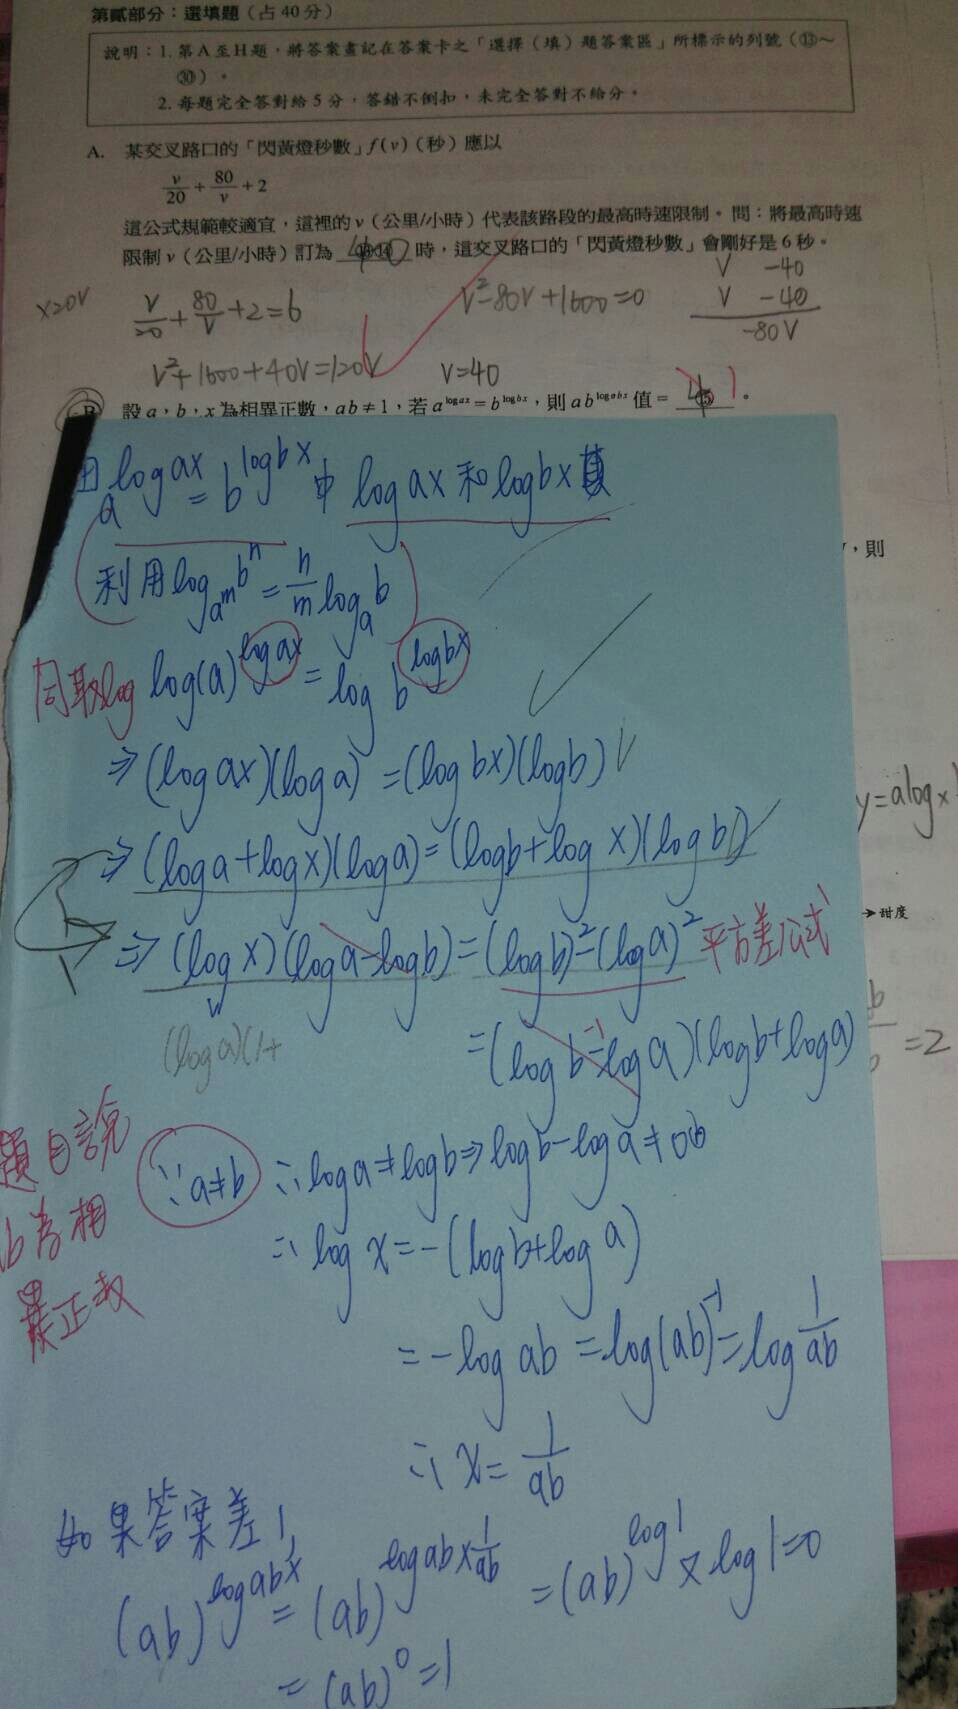 第貳部分：選填題（占40分）
說明：1. 第A至H題，將答案畫記在答案卡之「選擇（填）題答案區」所標示的列號（⑬～
⑳）。
2. 每題完全答對給5分，答錯不倒扣，未完全答對不給分。
A. 某交叉路口的「閃黃燈秒數」f(v)（秒）應以
v/20 + 80/v + 2
這公式規範較適宜，這裡的v（公里/小時）代表該路段的最高時速限制。問：將最高時速
限制v（公里/小時）訂為 40 時，這交叉路口的「閃黃燈秒數」會剛好是6秒。
x20V
V/20 + 80/V + 2 = 6
V²-80V+1600=0
V -40
V -40
-80V
V²+1600+40V=120V
V=40
B. 設a，b，x為相異正數，ab≠1，若a^(log ax)=b^(log bx)，則ab^(log abx)值= 1 。
a^(log ax) = b^(log bx) 中 log ax 和 log bx 真
，則
利用 log_(a^m) b^n = n/m log_a b
同取log log(a)^(log ax) = log b^(log bx)
⇒ (log ax)(log a) = (log bx)(log b)
y=alog x
⇒ (log a+log x)(log a)=(log b+log x)(log b)
→甜度
⇒ (log x)(log a-log b)=(log b)²-(log a)² 平方差公式
(log a)(1+
=(log b-log a)(log b+log a)
-1
b
=2
題目說
∵a≠b ∴log a≠log b⇒log b-log a≠0
b為相
異正數
∴ log x=-(log b+log a)
=-log ab=log(ab)^-1=log 1/ab
∴ x= 1/ab
如果答案差1,
(ab)^(log abx) = (ab)^(log ab×1/ab) =(ab)^(log 1) × log 1=0
=(ab)^0=1